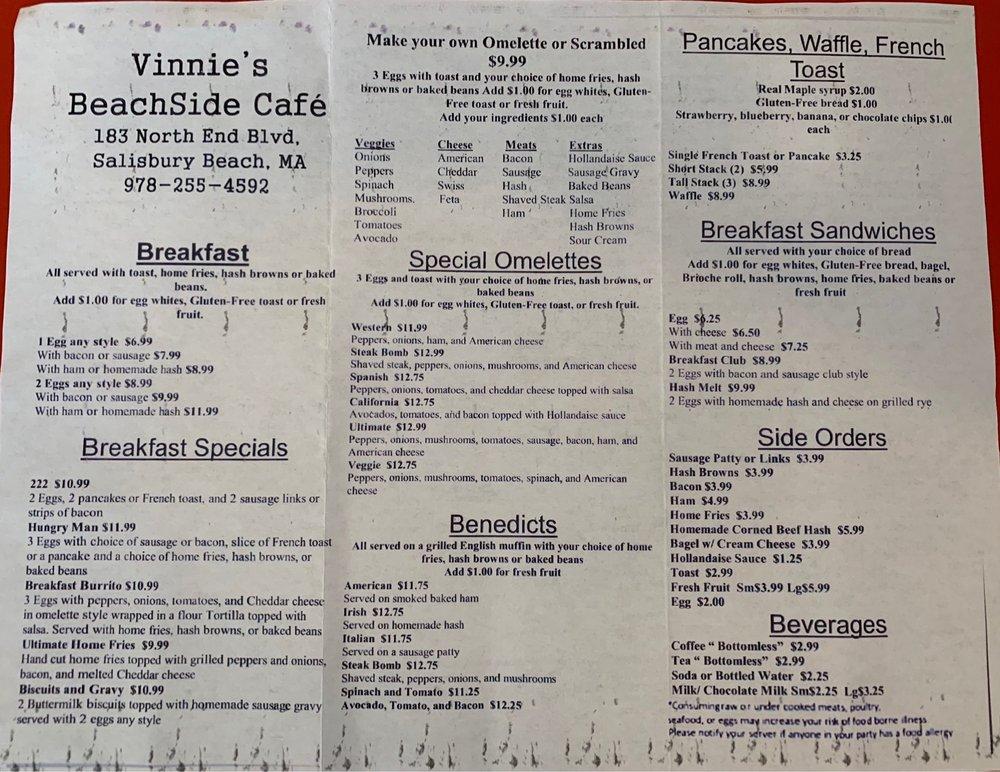 Vinnie's
BeachSide Café
183 North End Blvd,
Salisbury Beach, MA
978-255-4592
Breakfast
All served with toast, home fries, hash browns or baked
beans.
Add $1.00 for egg whites, Gluten-Free toast or fresh
fruit.
1 Egg any style $6.99
With bacon or sausage $7.99
With ham or homemade hash $8.99
2 Eggs any style $8.99
With bacon or sausage $9,99
With ham or homemade hash $11.99
Breakfast Specials
222 $10.99
2 Eggs, 2 pancakes or French toast, and 2 sausage links or
strips of bacon
Hungry Man $11.99
3 Eggs with choice of sausage or bacon, slice of French toast
or a pancake and a choice of home fries, hash browns, or
baked beans
Breakfast Burrito $10.99
3 Eggs with peppers, onions, tomatoes, and Cheddar cheese
in omelette style wrapped in a flour Tortilla topped with
salsa. Served with home fries, hash browns, or baked beans
Ultimate Home Fries $9.99
Hand cut home fries topped with grilled peppers and onions,
bacon, and melted Cheddar cheese
Biscuits and Gravy $10.99
2 Buttermilk biscuits topped with homemade sausage gravy
served with 2 eggs any style
Make your own Omelette or Scrambled
$9.99
3 Eggs with toast and your choice of home fries, hash
browns or baked beans Add $1.00 for egg whites, Gluten-
Free toast or fresh fruit.
Add your ingredients $1.00 each
Veggies Cheese Meats Extras
Onions American Bacon Hollandaise Sauce
Peppers Cheddar Sausage Sausage Gravy
Spinach Swiss Hash Baked Beans
Mushrooms. Feta Shaved Steak Salsa
Broccoli Ham Home Fries
Tomatoes Hash Browns
Avocado Sour Cream
Special Omelettes
3 Eggs and toast with your choice of home fries, hash browns, or
baked beans
Add $1.00 for egg whites, Gluten-Free toast, or fresh fruit.
Western $11.99
Peppers, onions, ham, and American cheese
Steak Bomb $12.99
Shaved steak, peppers, onions, mushrooms, and American cheese
Spanish $12.75
Peppers, onions, tomatoes, and cheddar cheese topped with salsa
California $12.75
Avocados, tomatoes, and bacon topped with Hollandaise sauce
Ultimate $12.99
Peppers, onions, mushrooms, tomatoes, sausage, bacon, ham, and
American cheese
Veggie $12.75
Peppers, onions, mushrooms, tomatoes, spinach, and American
cheese
Benedicts
All served on a grilled English muffin with your choice of home
fries, hash browns or baked beans
Add $1.00 for fresh fruit
American $11.75
Served on smoked baked ham
Irish $12.75
Served on homemade hash
Italian $11.75
Served on a sausage patty
Steak Bomb $12.75
Shaved steak, peppers, onions, and mushrooms
Spinach and Tomato $11.25
Avocado, Tomato, and Bacon $12.25
Pancakes, Waffle, French
Toast
Real Maple syrup $2.00
Gluten-Free bread $1.00
Strawberry, blueberry, banana, or chocolate chips $1.0(
each
Single French Toast or Pancake $3.25
Short Stack (2) $5,99
Tall Stack (3) $8.99
Waffle $8.99
Breakfast Sandwiches
All served with your choice of bread
Add $1.00 for egg whites, Gluten-Free bread, bagel,
Brioche roll, hash browns, home fries, baked beans or
fresh fruit
Egg $6.25
With cheese $6.50
With meat and cheese $7.25
Breakfast Club $8.99
2 Eggs with bacon and sausage club style
Hash Melt $9.99
2 Eggs with homemade hash and cheese on grilled rye
Side Orders
Sausage Patty or Links $3.99
Hash Browns $3.99
Bacon $3.99
Ham $4.99
Home Fries $3.99
Homemade Corned Beef Hash $5.99
Bagel w/ Cream Cheese $3.99
Hollandaise Sauce $1.25
Toast $2.99
Fresh Fruit Sm$3.99 Lg$5.99
Egg $2.00
Beverages
Coffee " Bottomless" $2.99
Tea " Bottomless" $2.99
Soda or Bottled Water $2.25
Milk/ Chocolate Milk Sm$2.25 Lg$3.25
*Consuming raw or under cooked meats, poultry,
seafood, or eggs may increase your risk of food borne illness
Please notify your server if anyone in your party has a food allergy